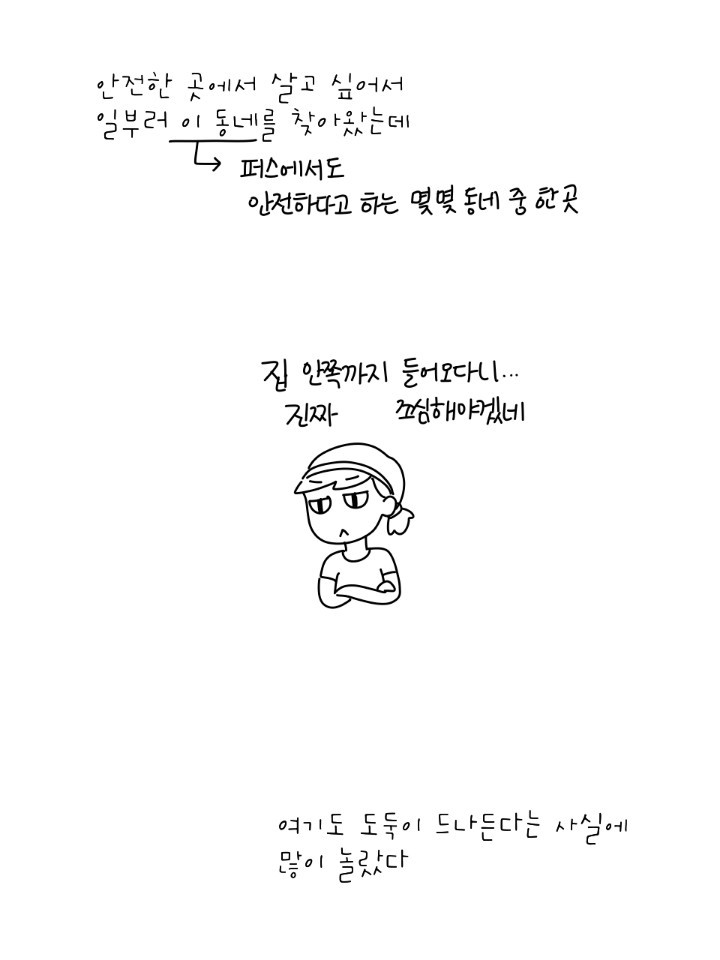 안전한 곳에서 살고 싶어서
일부러 이 동네를 찾아왔는데
퍼스에서도
안전하다고 하는 몇몇 동네 중 한 곳
집 안쪽까지 들어오다니...
진짜 조심해야겠네
여기도 도둑이 드나든다는 사실에
많이 놀랐다